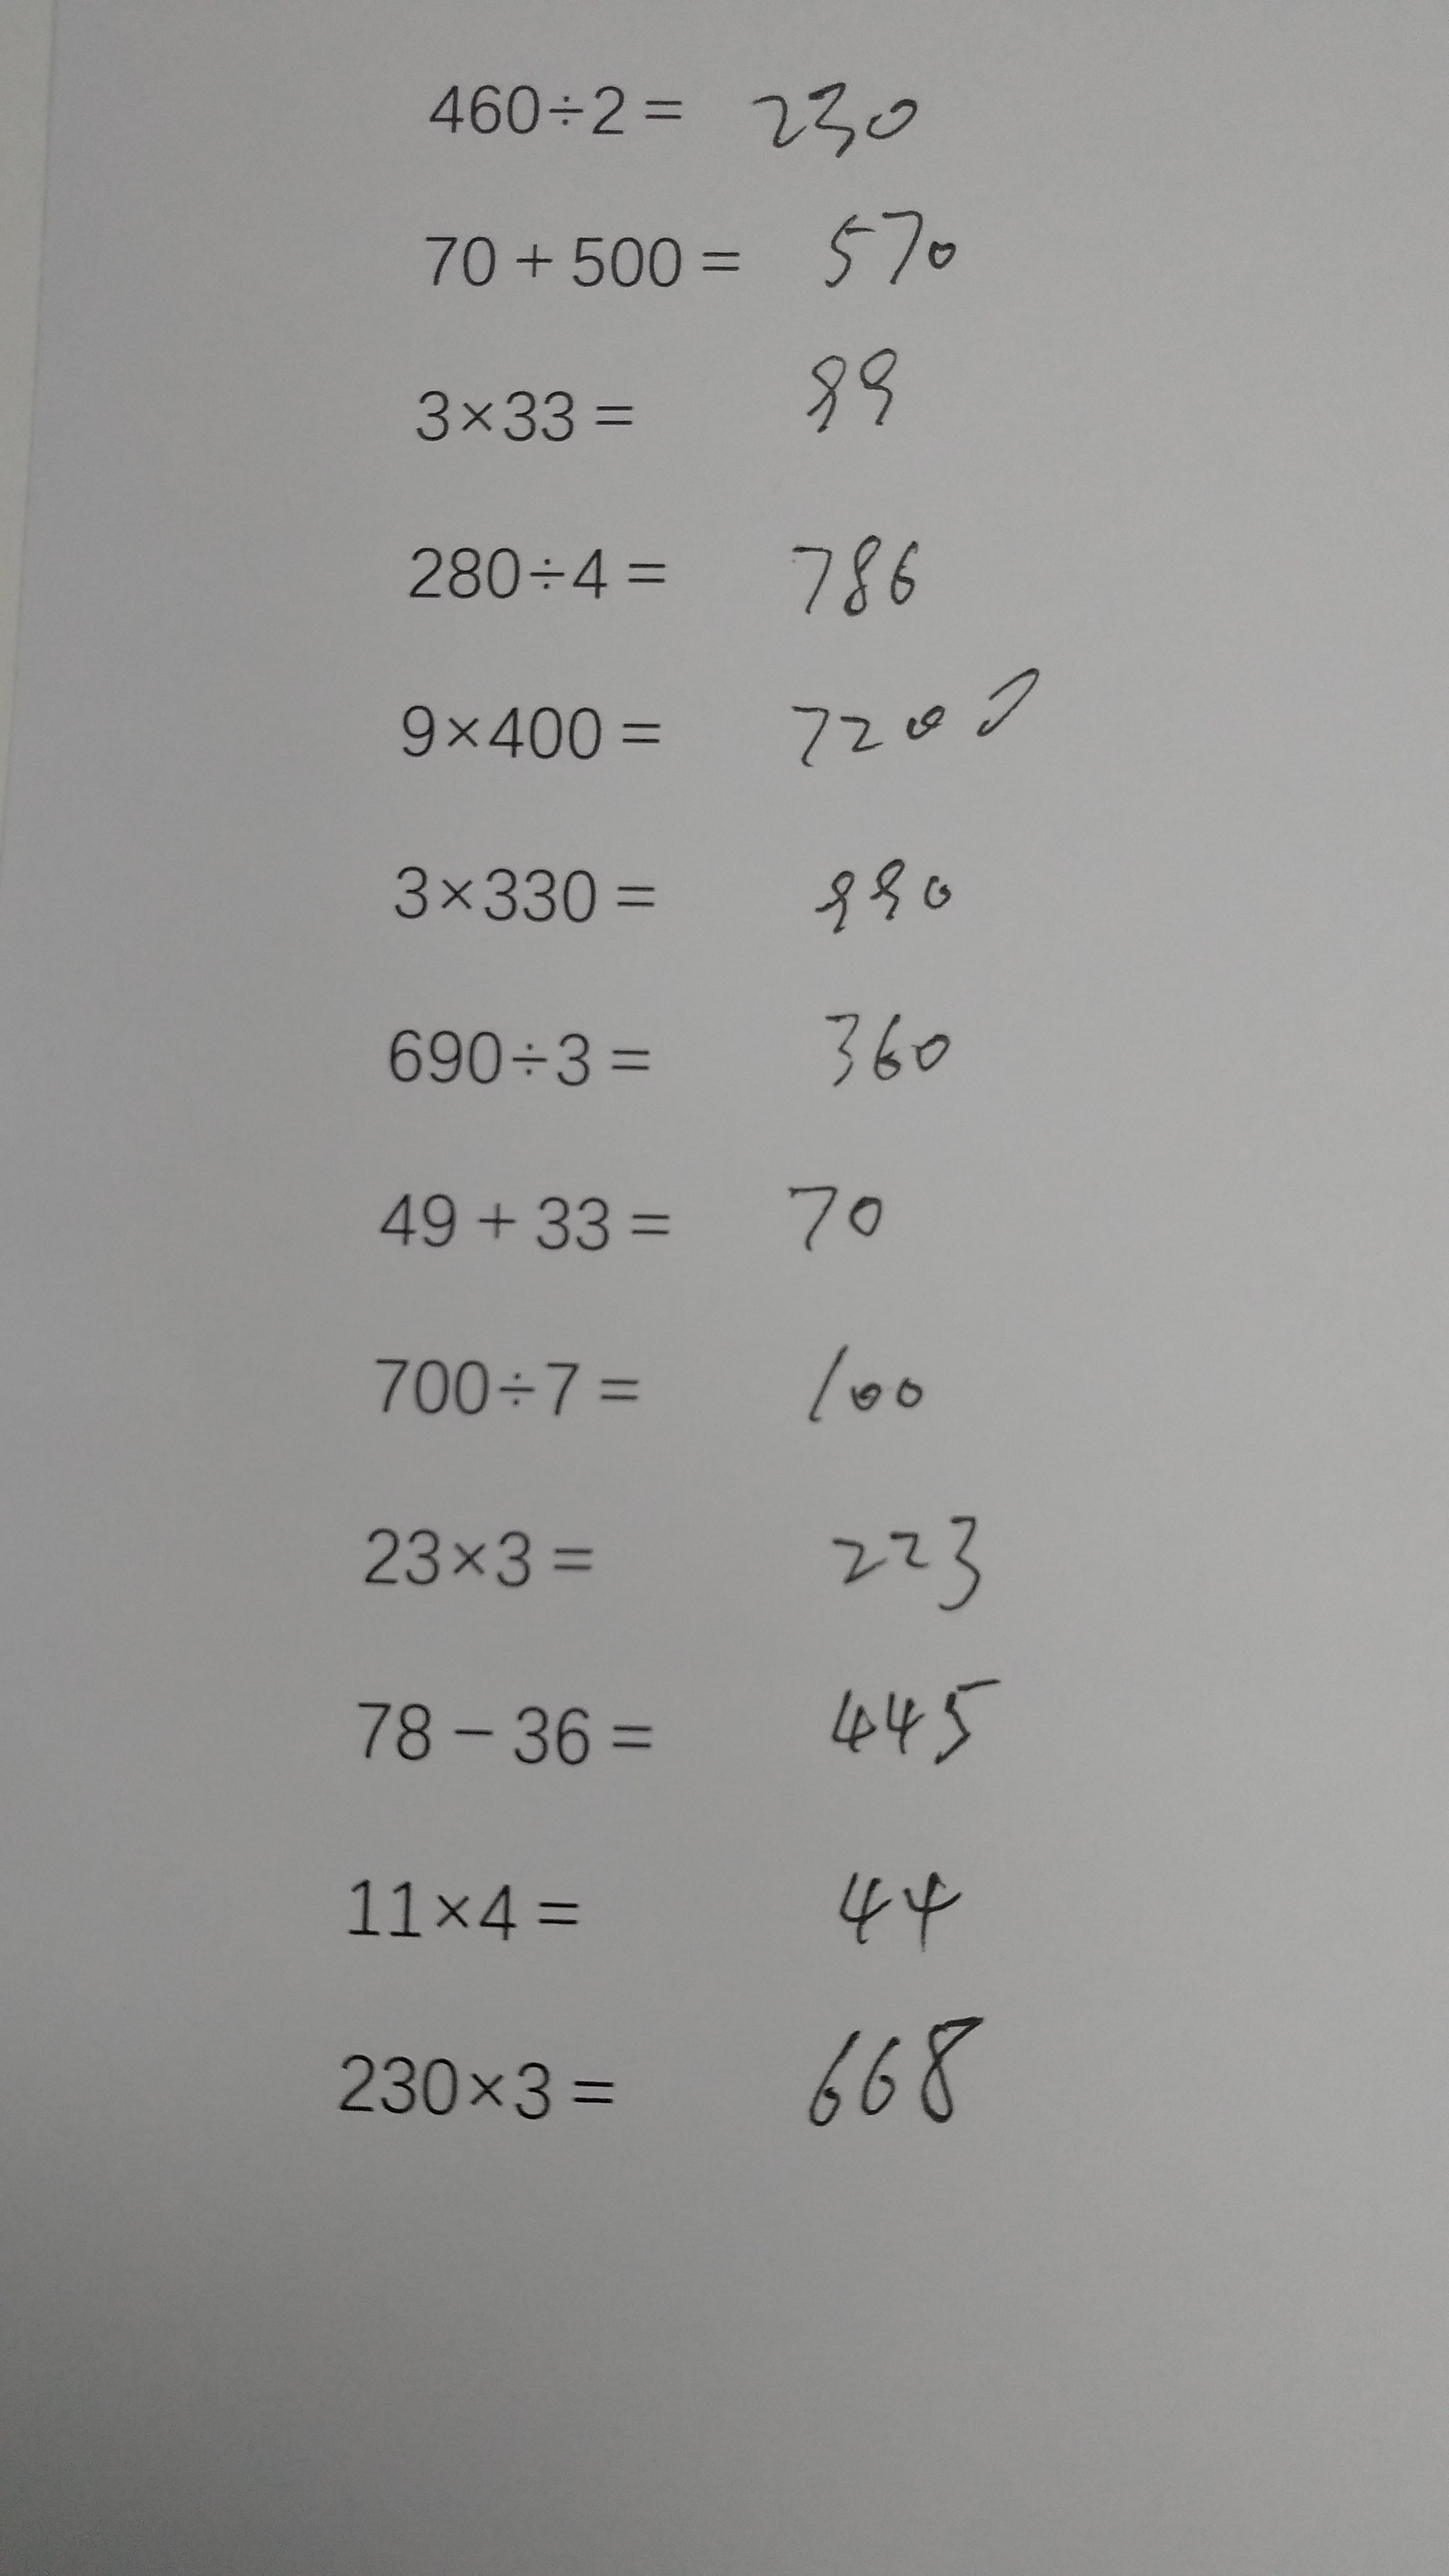 460÷2= 230
70+500= 570
3×33= 99
280÷4= 786
9×400= 7200
3×330= 990
690÷3= 360
49+33= 70
700÷7= 100
23×3= 223
78−36= 445
11×4= 44
230×3= 668